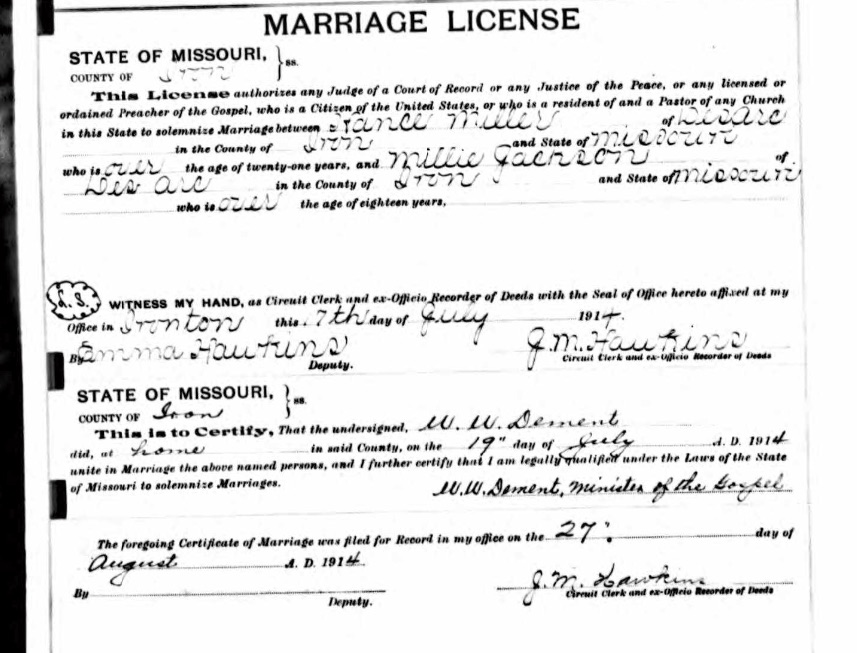 MARRIAGE LICENSE
STATE OF MISSOURI, } ss.
COUNTY OF Iron
This License authorizes any Judge of a Court of Record or any Justice of the Peace, or any licensed or
ordained Preacher of the Gospel, who is a Citizen of the United States, or who is a resident of and a Pastor of any Church
in this State to solemnize Marriage between Miller of Des Arc
in the County of Iron and State of Missouri
who is over the age of twenty-one years, and Millie Jackson of
Des Arc in the County of Iron and State of Missouri
who is over the age of eighteen years.
L. S. WITNESS MY HAND, as Circuit Clerk and ex-Officio Recorder of Deeds with the Seal of Office hereto affixed at my
Office in Ironton this 17th day of July 1914.
By Emma Hawkins J. M. Hawkins
Deputy. Circuit Clerk and ex-Officio Recorder of Deeds
STATE OF MISSOURI, } ss.
COUNTY OF Iron
This is to Certify, That the undersigned, W. W. Dement
did, at home in said County, on the 19" day of July A. D. 1914
unite in Marriage the above named persons, and I further certify that I am legally qualified under the Laws of the State
of Missouri to solemnize Marriages. W. W. Dement, Minister of the Gospel
The foregoing Certificate of Marriage was filed for Record in my office on the 27". day of
August A. D. 1914.
By J. M. Hawkins
Deputy. Circuit Clerk and ex-Officio Recorder of Deeds